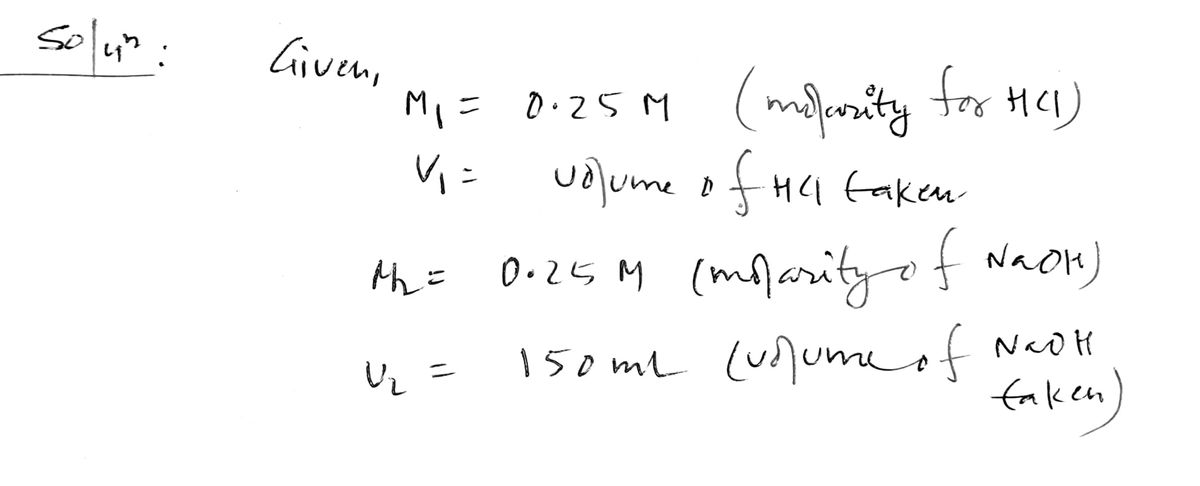 Solun: Given,
M1 = 0.25 M (molarity for HCl)
V1 = volume of HCl taken
M2 = 0.25 M (molarity of NaOH)
V2 = 150 mL (volume of NaOH
taken)